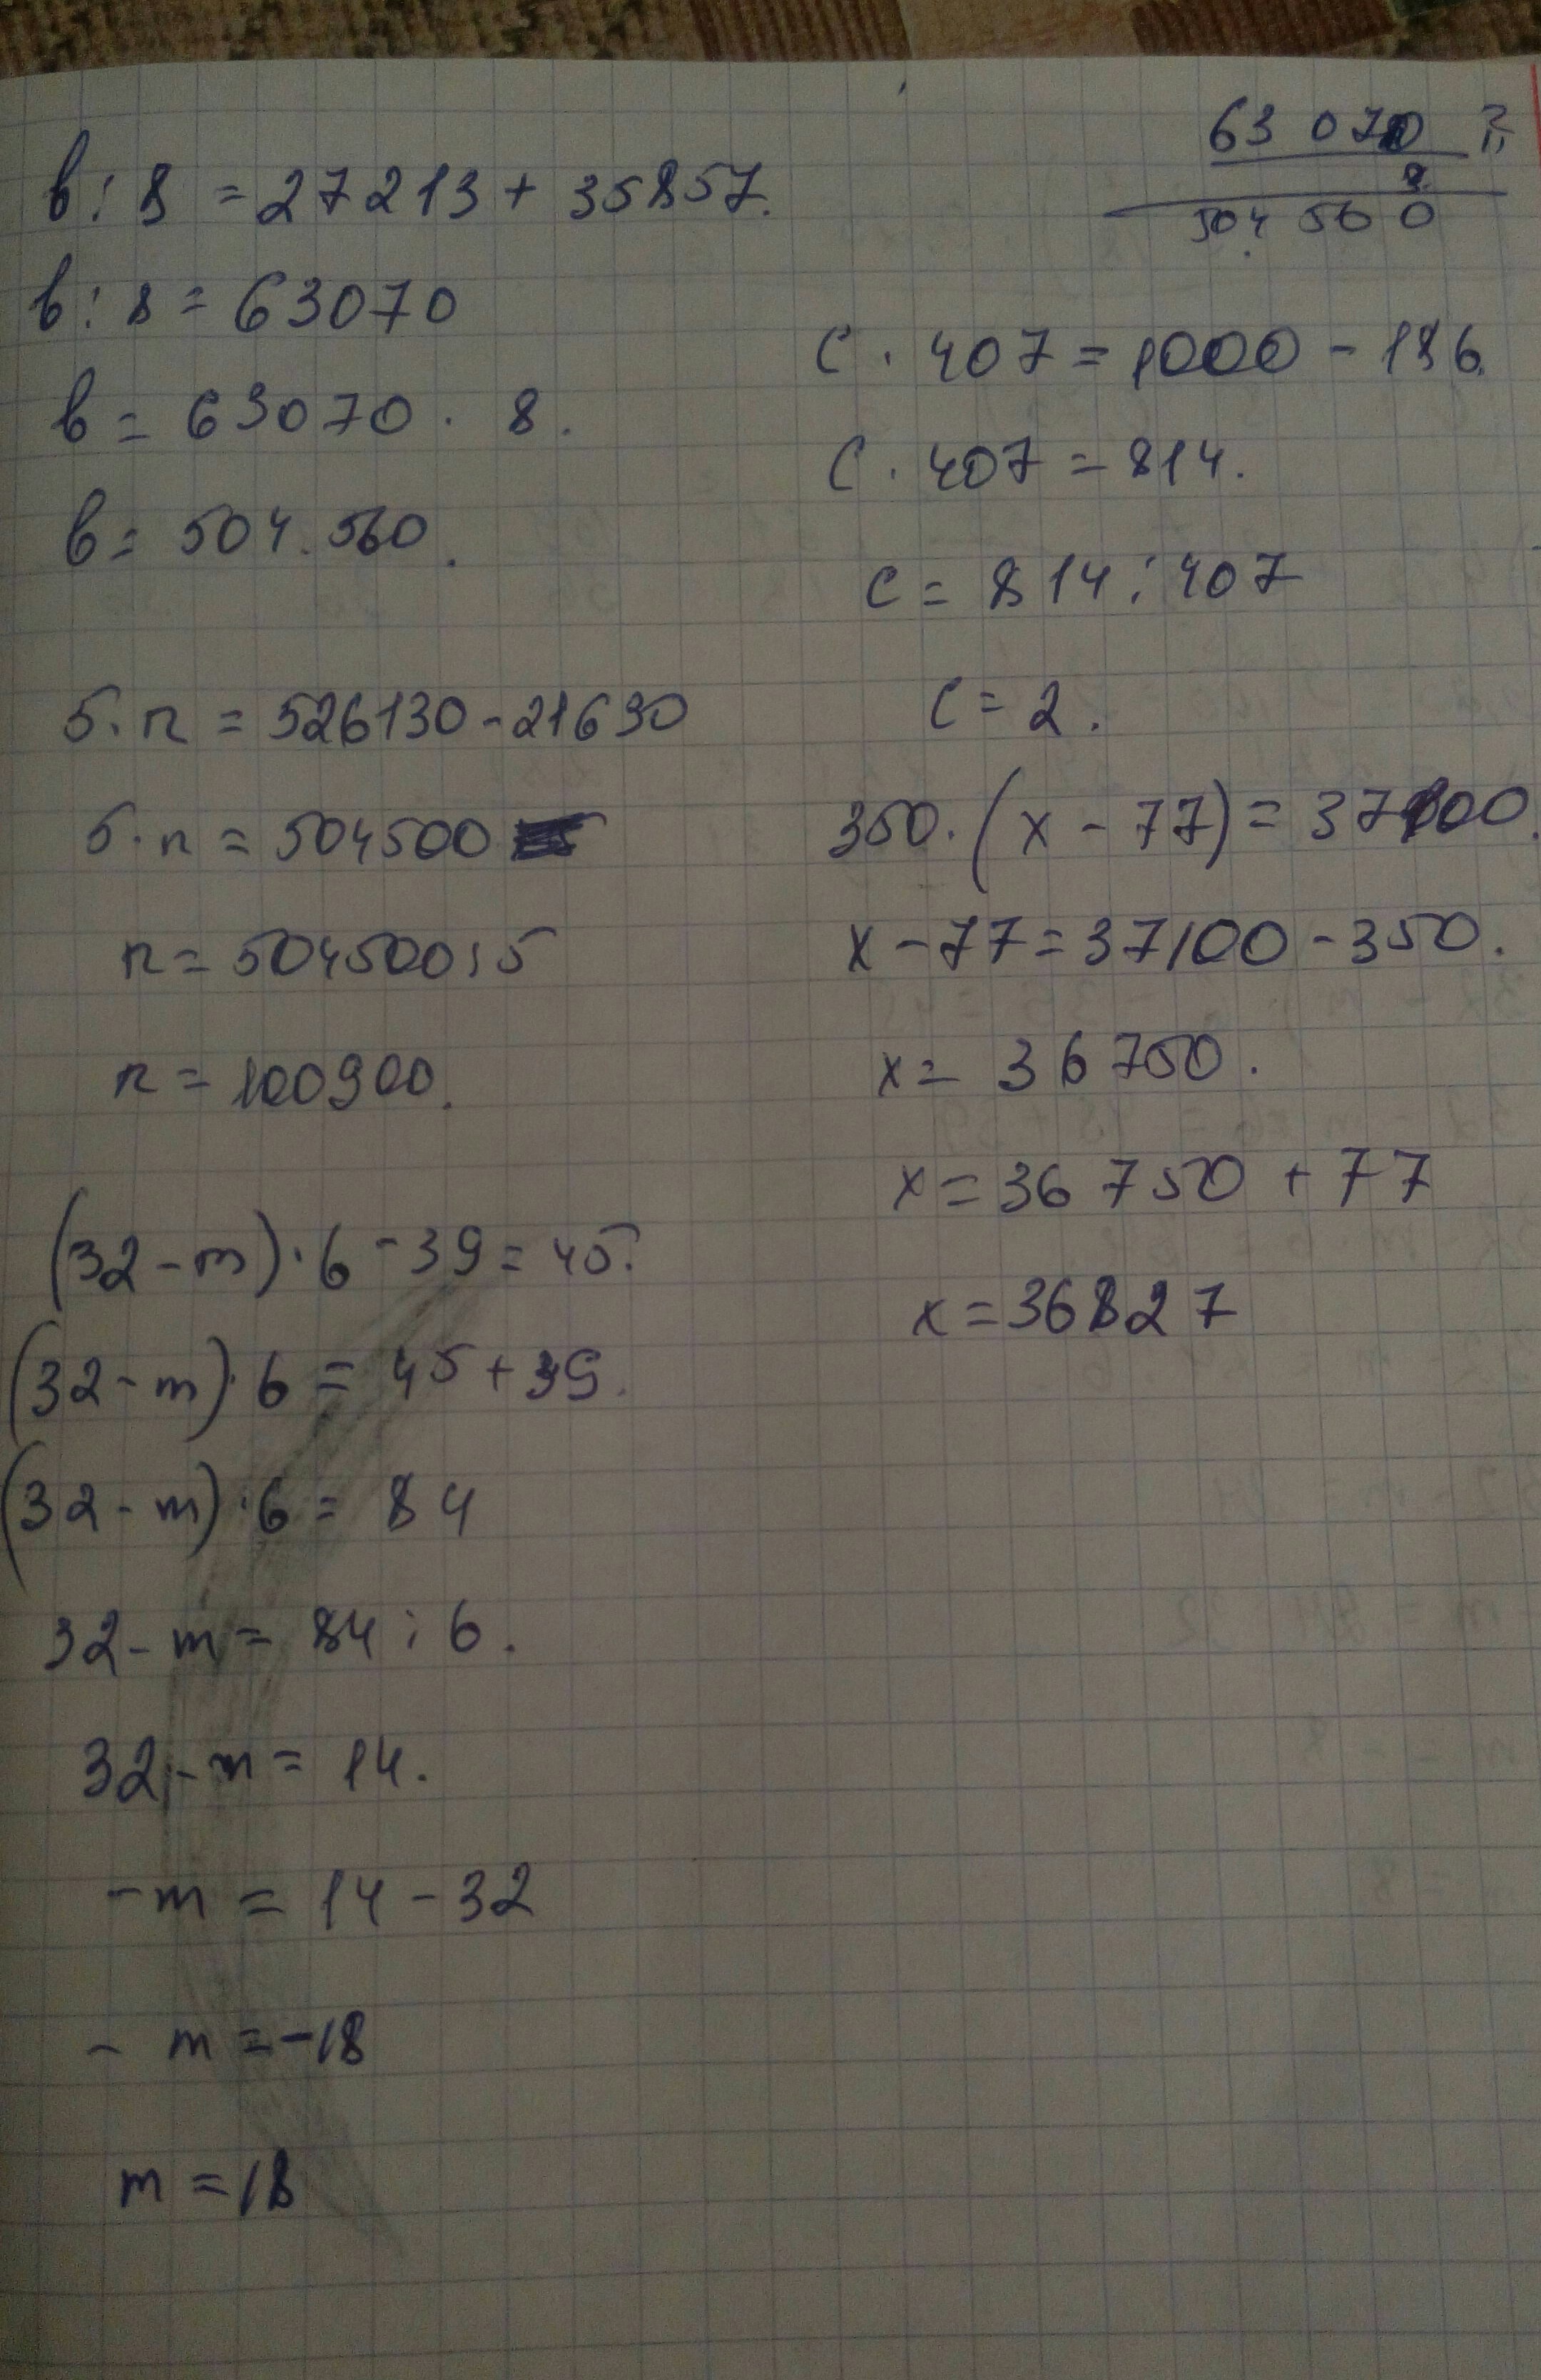 в : 8 = 27213 + 35857.
в : 8 = 63070
в = 63070 · 8.
в = 504.560.
5 · n = 526130 - 21630
5 · n = 504500
n = 504500 : 5
n = 100900.
(32 - m) · 6 - 39 = 45.
(32 - m) · 6 = 45 + 39.
(32 - m) · 6 = 84
32 - m = 84 : 6.
32 - m = 14.
- m = 14 - 32
- m = -18
m = 18
63 070
8
504 560
c · 407 = 1000 - 186.
c · 407 = 814.
c = 814 : 407
c = 2.
350 · (x - 77) = 37100.
x - 77 = 37100 - 350.
x = 36750.
x = 36750 + 77
x = 36827